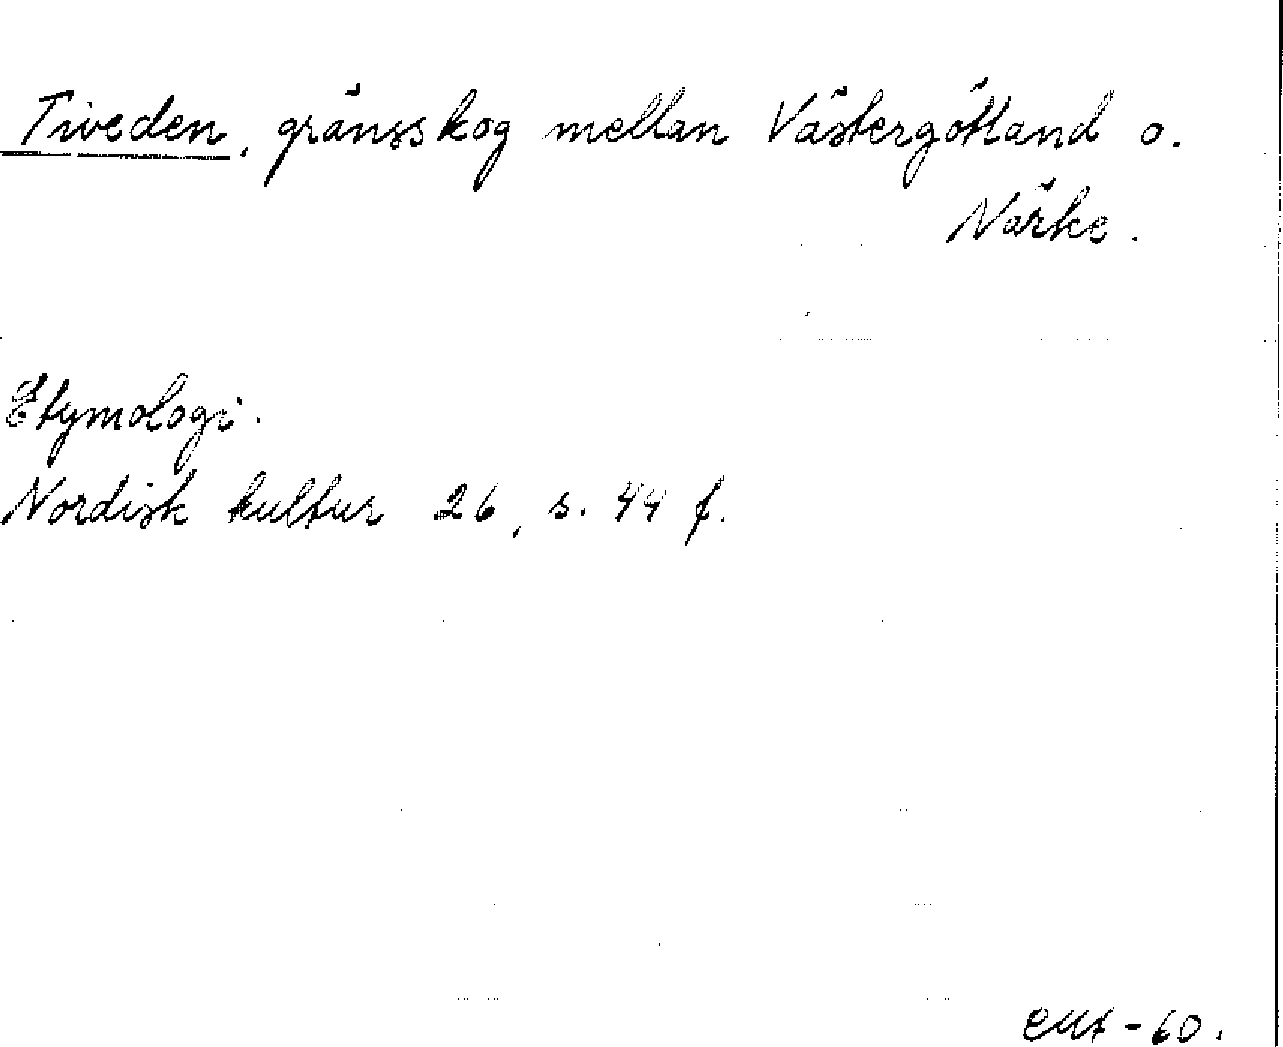 Tiveden, gränsskog mellan Västergötland o.
Närke.
Etymologi.
Nordisk kultur 26, s. 44 f.
-60.